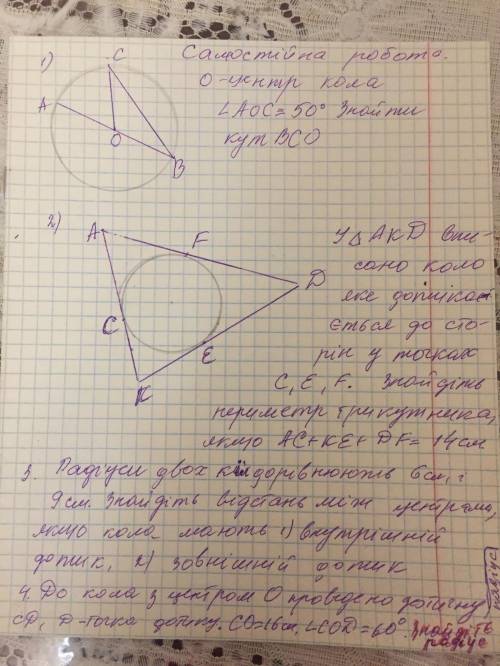 Самостійна робота.
1)
C
A
O
B
О-центр кола
∠AOC=50° Знайти
кут BCO
2)
A
F
D
C
E
K
У △ AKD впи-
сано коло
яке дотикає
ється до сто-
рін у точках
C, E, F. Знайдіть
периметр трикутника,
якщо AC+KE+DF=14см
3. Радіуси двох кіл дорівнюють 6см, і
9см. Знайдіть відстань між центрами,
якщо кола мають 1) внутрішній
дотик, 2) зовнішній дотик
4. До кола з центром О проведено дотичну
CD, D-точка дотику. CO=16см, ∠COD=60°. Знайдіть
радіус
радіус